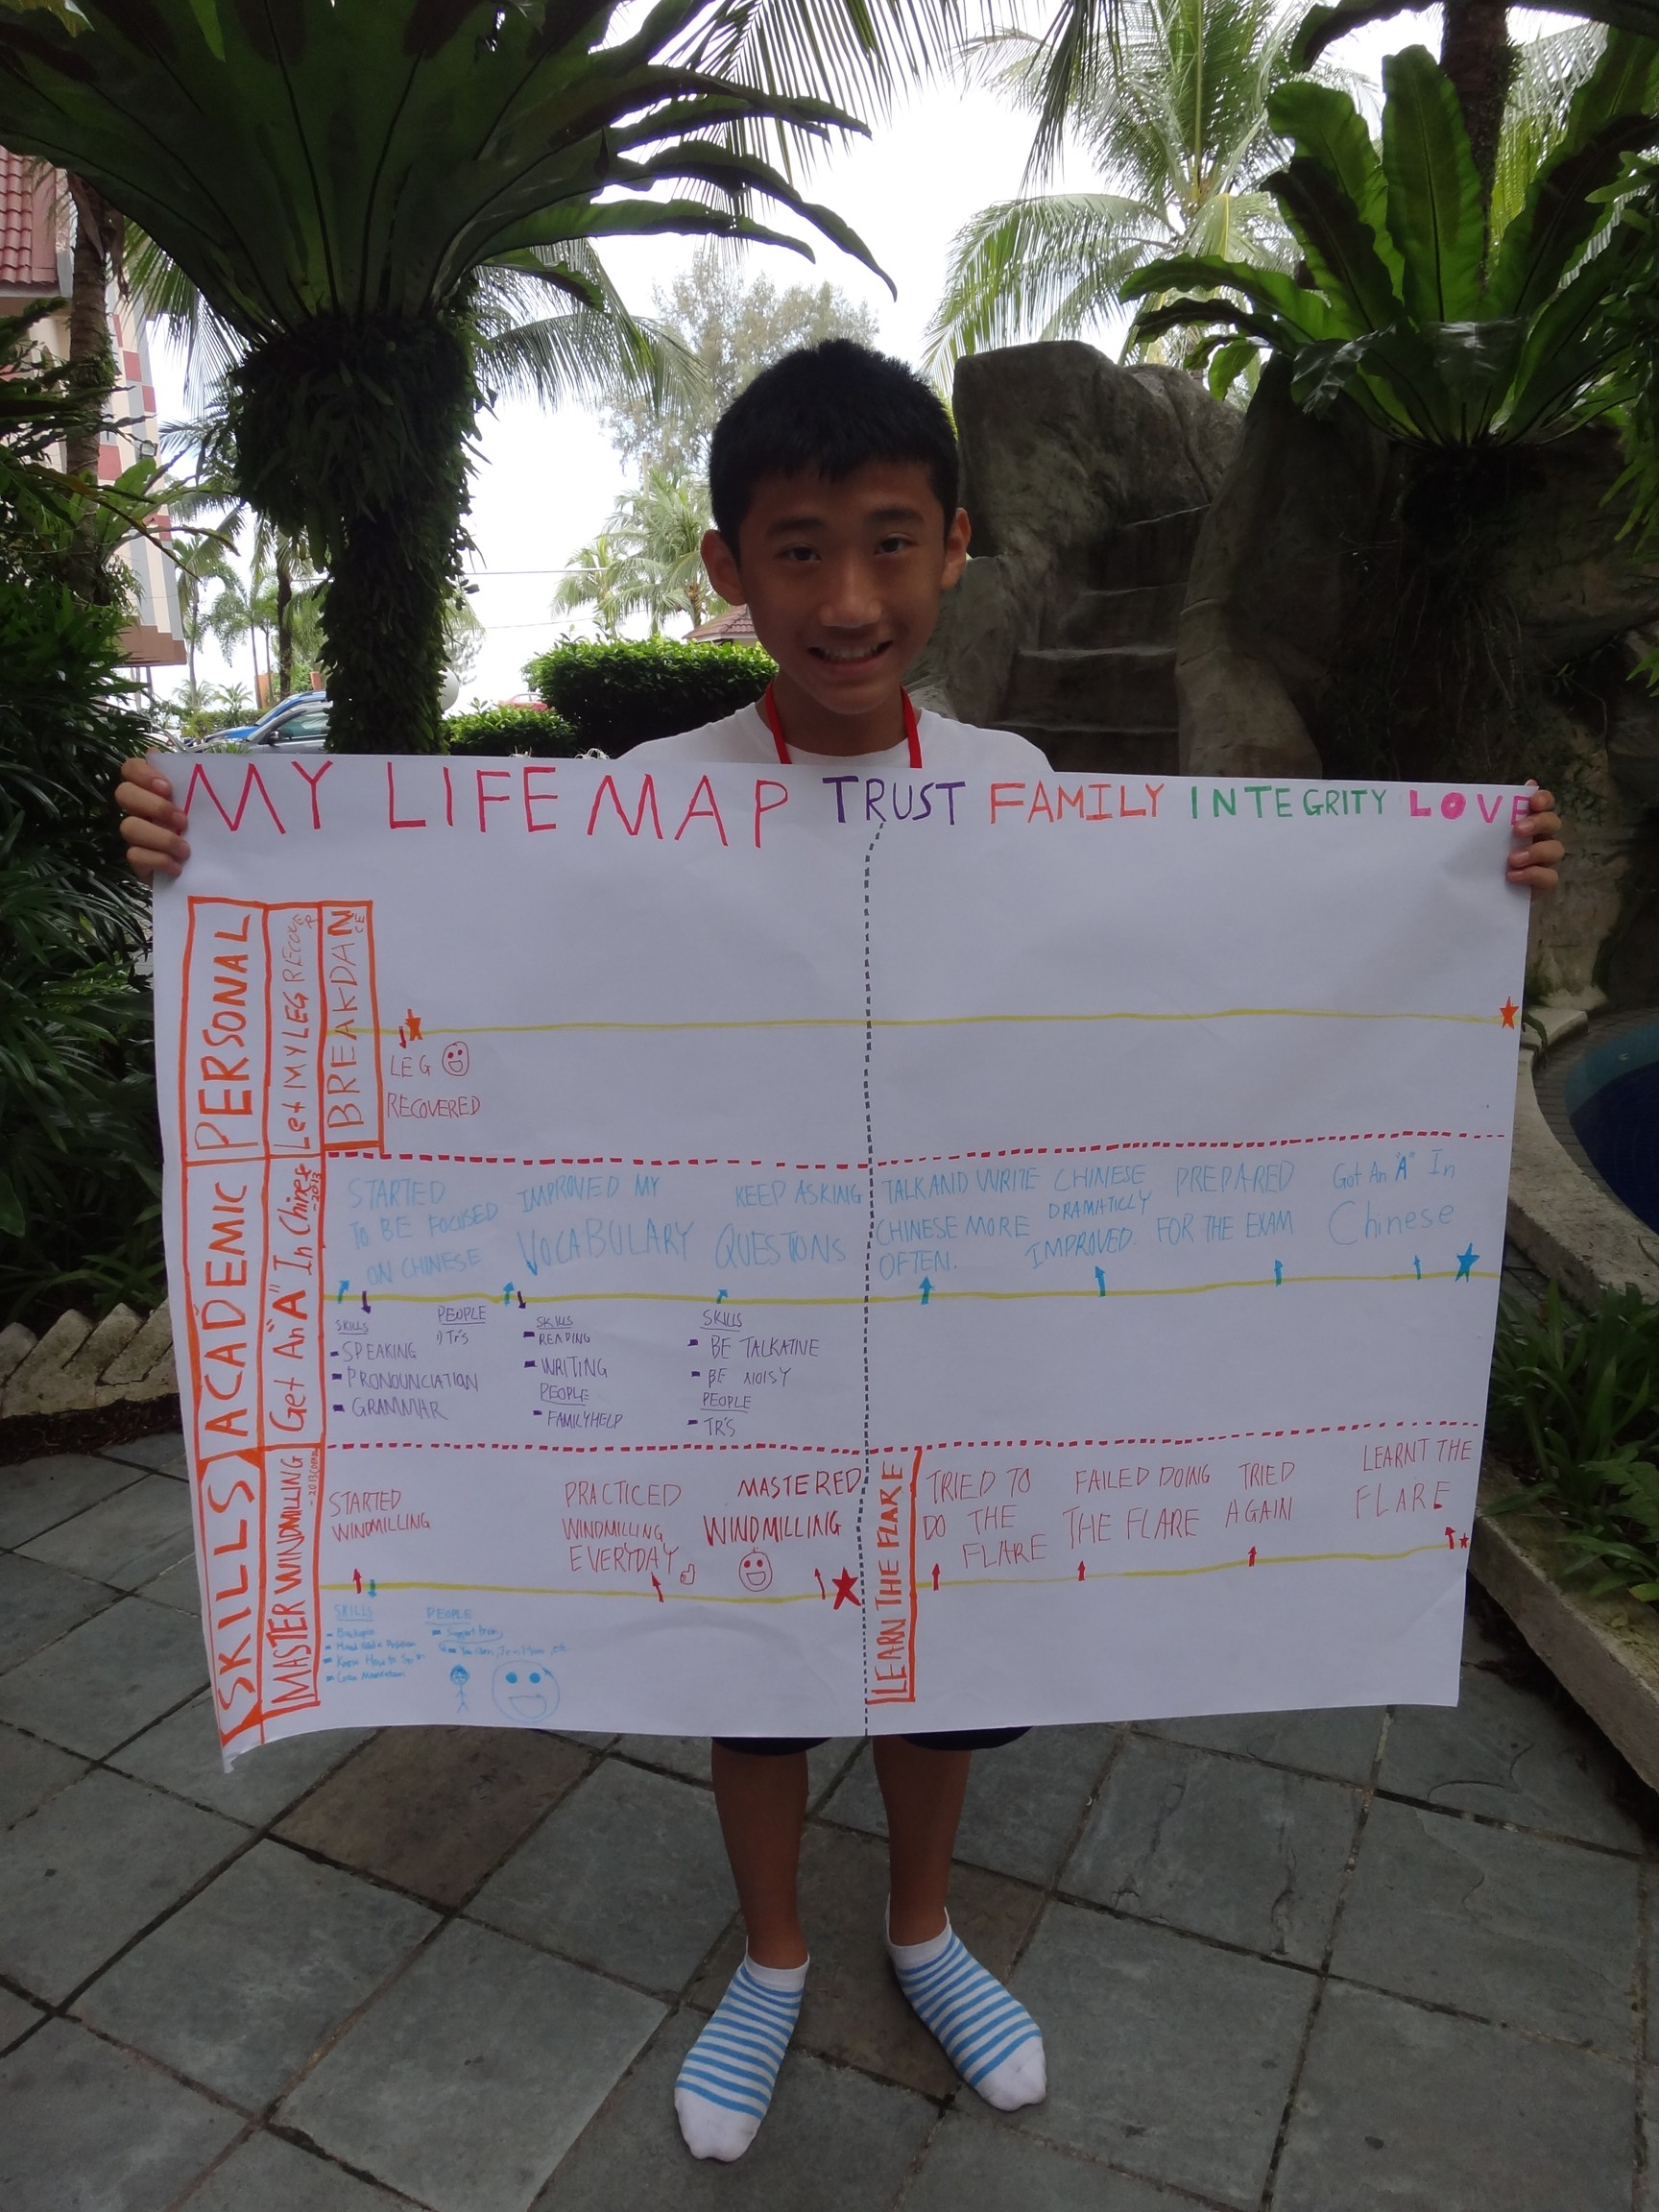 MY LIFE MAP TRUST FAMILY INTEGRITY LOVE
PERSONAL
Let MY LEG RECOVER
BREAKDANCE
LEG
RECOVERED
ACADEMIC
Get An "A" In Chinese
-2013
STARTED
TO BE FOCUSED
ON CHINESE
IMPROVED MY
VOCABULARY
KEEP ASKING
QUESTONS
TALK AND WRITE
CHINESE MORE
OFTEN.
CHINESE
DRAMATICLY
IMPROVED.
PREPARED
FOR THE EXAM
Got An "A" In
Chinese
SKILLS
- SPEAKING
- PRONOUNCIATION
- GRAMMAR
PEOPLE
1) Tr's
SKILLS
- READING
- WRITING
PEOPLE
- FAMILY HELP
SKILLS
- BE TALKATIVE
- BE NOISY
PEOPLE
- TR'S
SKILLS
MASTER WINDMILLING
STARTED
WINDMILLING
PRACTICED
WINDMILLING
EVERYDAY
MASTERED
WINDMILLING
LEARN THE FLARE
TRIED TO
DO THE
FLARE
FAILED DOING
THE FLARE
TRIED
AGAIN
LEARNT THE
FLARE
SKILLS
- Backspin
- Know How to Spin
PEOPLE
- Support from